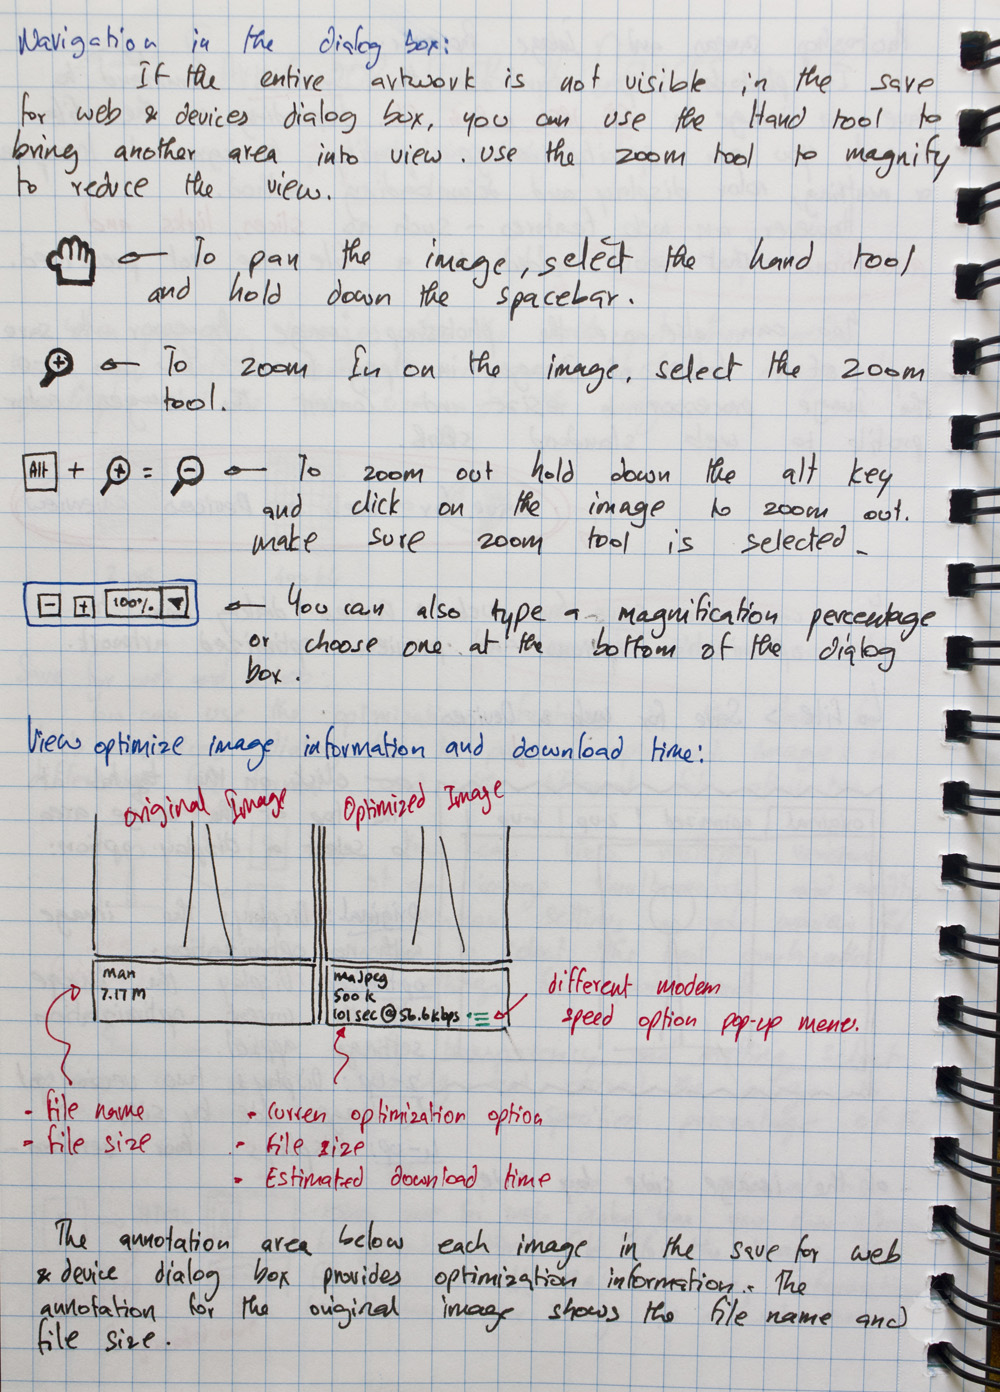 Navigation in the dialog box:
If the entire artwork is not visible in the save
for web & devices dialog box, you can use the Hand tool to
bring another area into view. use the zoom tool to magnify
to reduce the view.
To pan the image, select the hand tool
and hold down the spacebar.
To zoom In on the image, select the zoom
tool.
Alt + = To zoom out hold down the alt key
and click on the image to zoom out.
make sure zoom tool is selected
- + 100% You can also type a magnification percentage
or choose one at the bottom of the dialog
box.
View optimize image information and download time:
original Image Optimized Image
man
7.17 M
maJpeg
500 k
101 sec @ 56.6kbps
different modem
speed option pop-up menu.
- file name
- file size
- Curren optimization option
- file size
- Estimated download time
The annotation area below each image in the save for web
& device dialog box provides optimization information. The
annotation for the original image shows the file name and
file size.